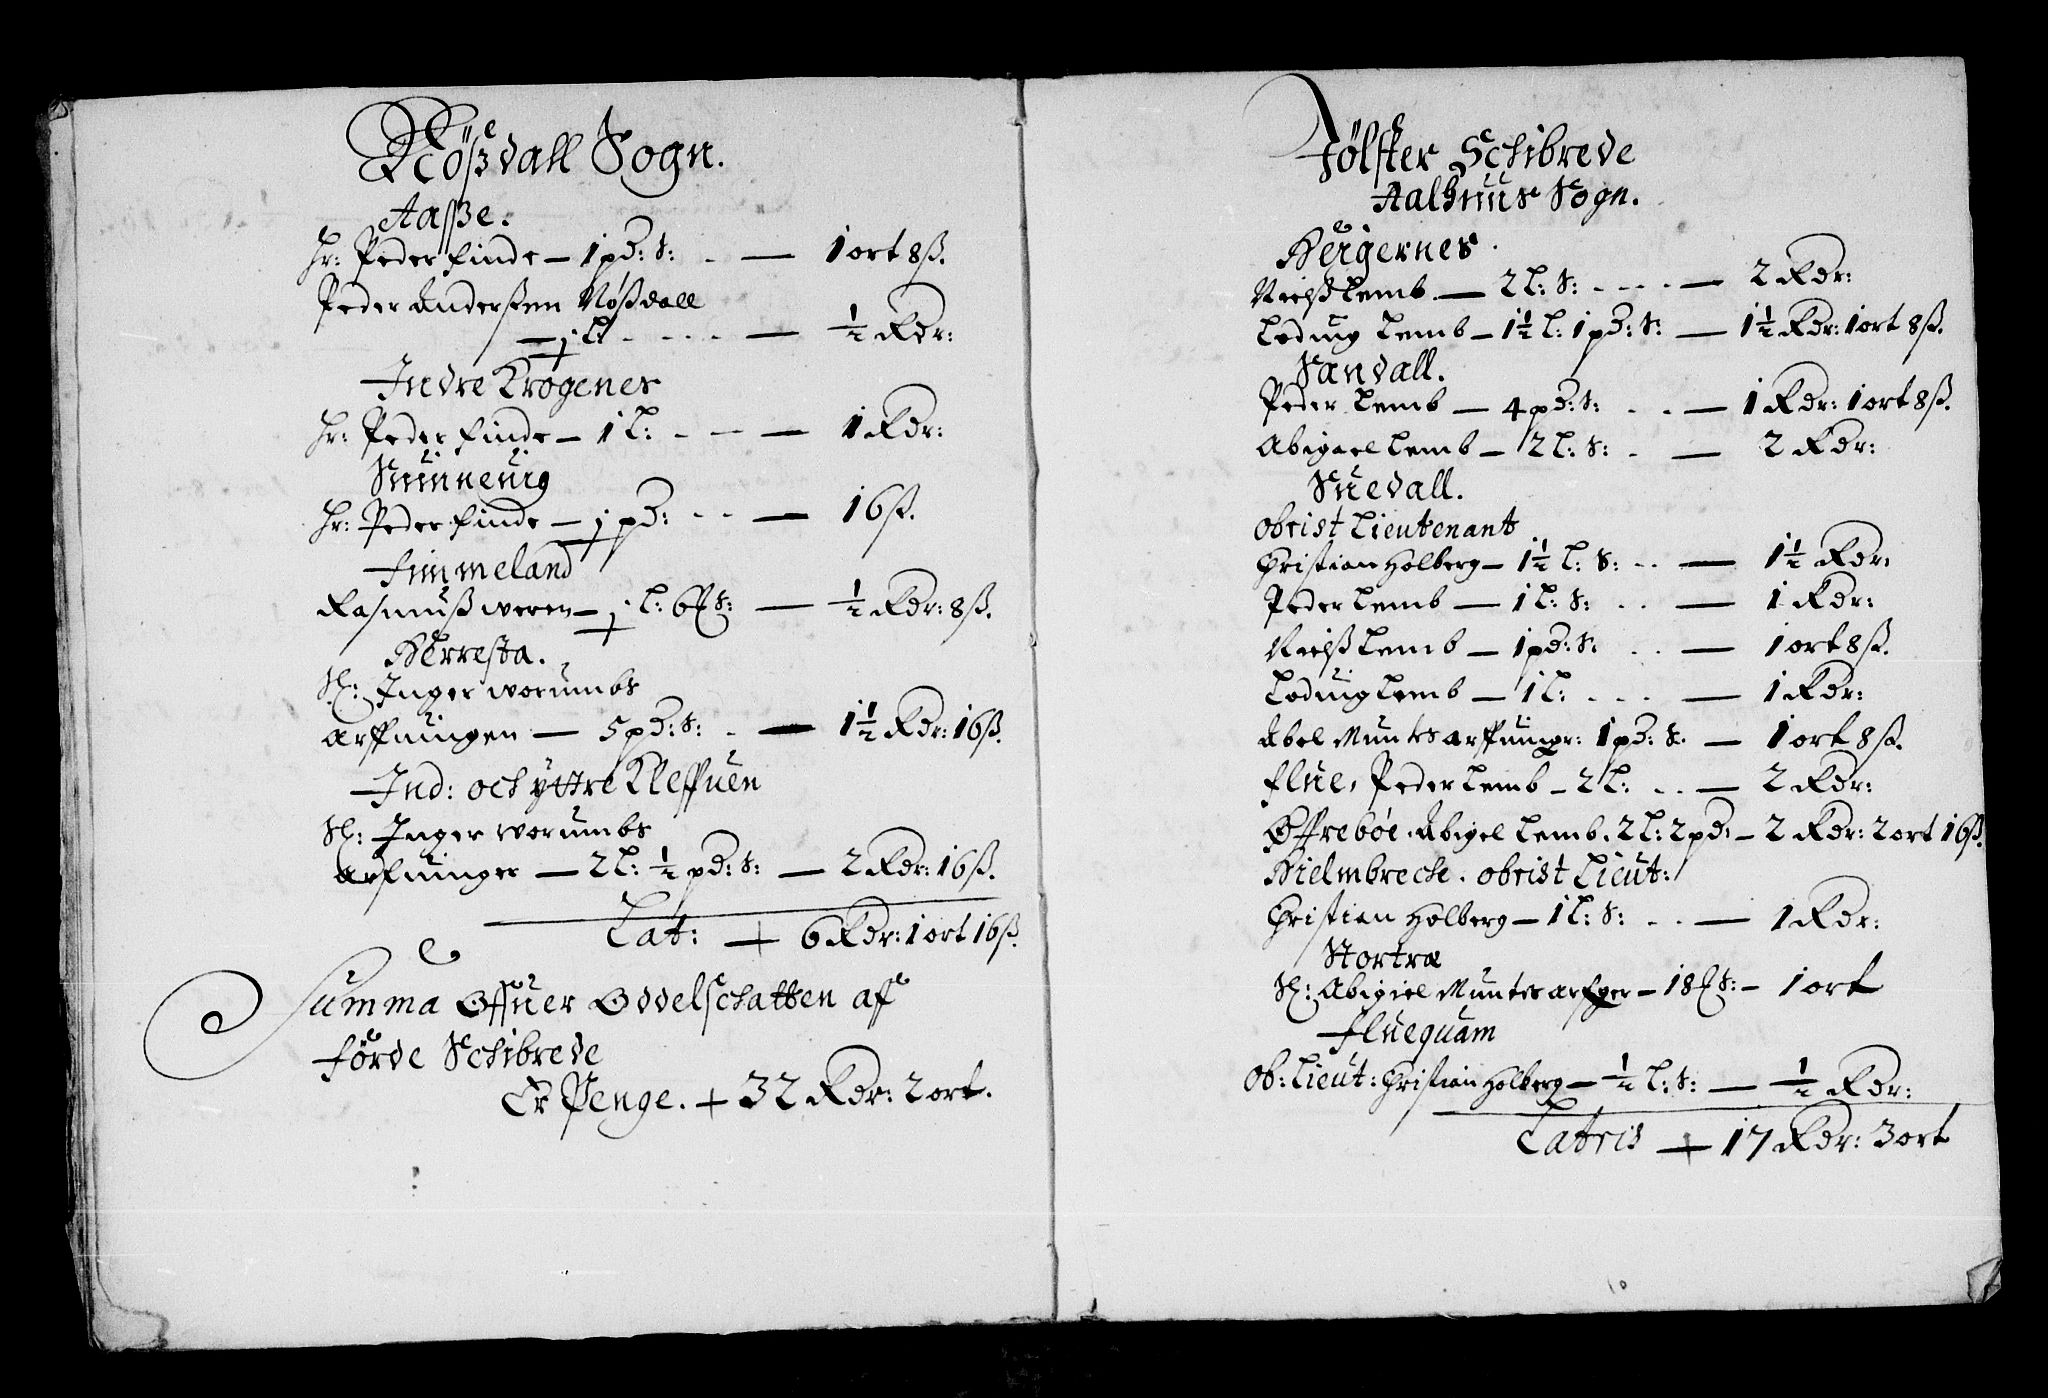 Nößdall Sogn.
Aasße.
Hr: Peder Finde — 1 pd: S: — 1 ort 8 ß.
Peder Anderßen Nößdall
— ½ L: — ½ Rdr:
Indre Krogenes
Hr: Peder Finde — 1 L: — 1 Rdr:
Sunneuig
Hr: Peder Finde — ½ pd: — 16 ß.
Fimmeland
Rasmuß weren — ½ L: 6 S: — ½ Rdr: 8 ß.
Berresta.
Sl: Inger worumbs
arffuingen — 5 pd: S: — 1½ Rdr: 16 ß.
Ind: och yttre Kleffuen
Sl: Inger worumbs
arfuinger — 2 L: ½ pd: S: — 2 Rdr: 16 ß.
Lat: — 6 Rdr: 1 ort 16 ß.
Summa Offuer Oddelschatten aff
Förde Schibrede
Er Penge. + 32 Rdr: 2 ort.
Jölster Schibrede
Aalhuus Sogn.
Bergernes.
Nielß Lemb — 2 L: S: — 2 Rdr:
Loduig Lemb — 1½ L: 1 pd: S: — 1½ Rdr: 1 ort 8 ß.
Sandall.
Peder Lemb — 4 pd: S: — 1 Rdr: 1 ort 8 ß.
Abigael Lemb — 2 L: S: — 2 Rdr:
Suedall.
Obrist Lieutenant
Christian Holberg — 1½ L: S: — 1½ Rdr:
Peder Lemb — 1 L: S: — 1 Rdr:
Nielß Lemb — 1 pd: S: — 1 ort 8 ß.
Loduig Lemb — 1 L: — 1 Rdr:
Abel Muntes arffuingr: 1 pd: S: — 1 ort 8 ß.
Flue, Peder Lemb — 2 L: — 2 Rdr:
Øffrebøe. Abigel Lemb. 2 L: 2 pd: — 2 Rdr: 2 ort 16 ß.
Hielmbreche. Obrist Lieut:
Christian Holberg — 1 L: S: — 1 Rdr:
Stortræ
Sl: Abigiel Muntes arfger — 18 S: — 1 ort
Fluequam
Ob: Lieut: Christian Holberg — ½ L: S: — ½ Rdr:
Latris — 17 Rdr: 3 ort